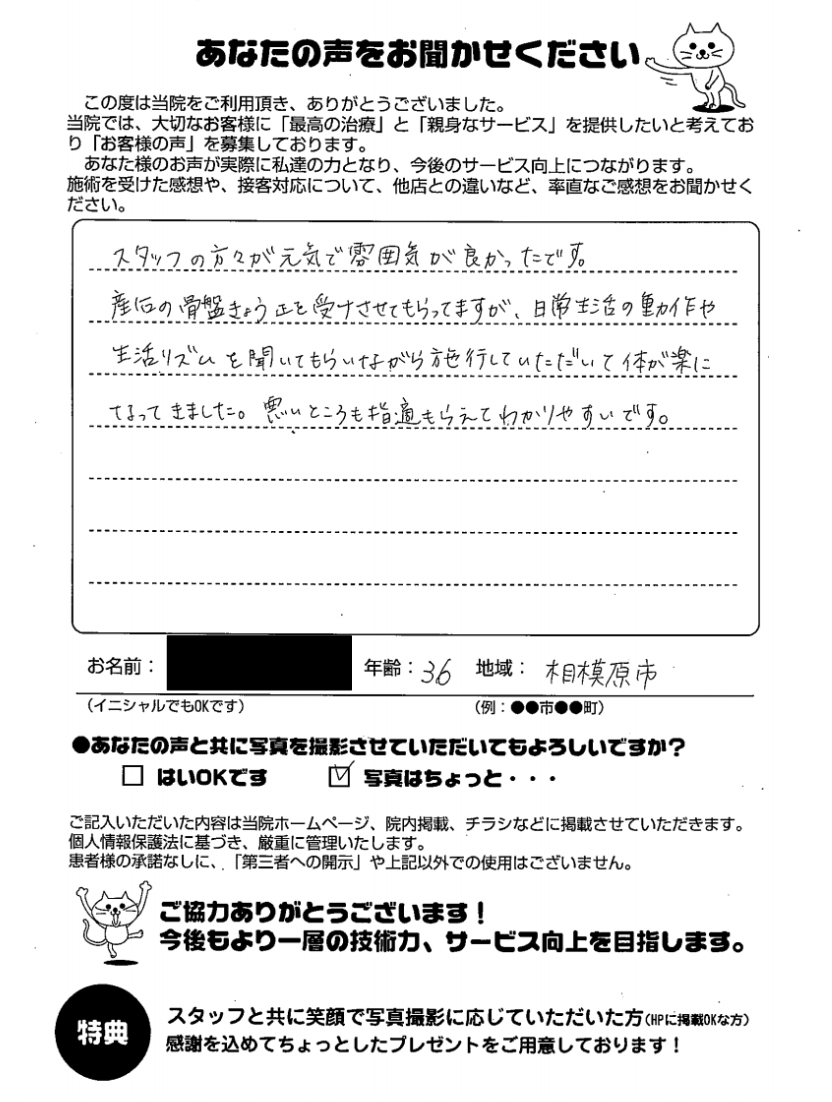 あなたの声をお聞かせください
この度は当院をご利用頂き、ありがとうございました。
当院では、大切なお客様に「最高の治療」と「親身なサービス」を提供したいと考えてお
り「お客様の声」を募集しております。
あなた様のお声が実際に私達の力となり、今後のサービス向上につながります。
施術を受けた感想や、接客対応について、他店との違いなど、率直なご感想をお聞かせく
ださい。
スタッフの方々が元気で雰囲気が良かったです。
産后の骨盤きょう正を受けさせてもらってますが、日常生活の動作や
生活リズムを聞いてもらいながら施行していただいて体が楽に
なってきました。悪いところも指適もらえてわかりやすいです。
お名前： 年齢：36 地域：相模原市
（イニシャルでもOKです） （例：●●市●●町）
●あなたの声と共に写真を撮影させていただいてもよろしいですか？
□ はいOKです ☑ 写真はちょっと・・・
ご記入いただいた内容は当院ホームページ、院内掲載、チラシなどに掲載させていただきます。
個人情報保護法に基づき、厳重に管理いたします。
患者様の承諾なしに、「第三者への開示」や上記以外での使用はございません。
ご協力ありがとうございます！
今後もより一層の技術力、サービス向上を目指します。
特典
スタッフと共に笑顔で写真撮影に応じていただいた方（HPに掲載OKな方）
感謝を込めてちょっとしたプレゼントをご用意しております！